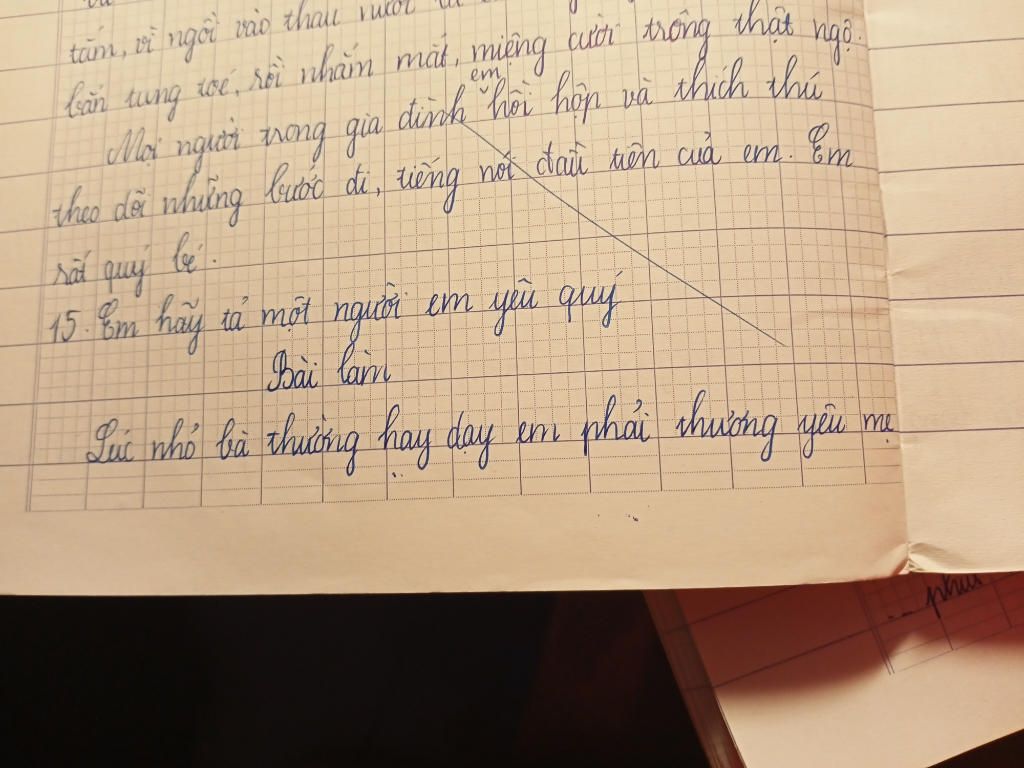 tắm, vì ngồi vào thau
bắn tung toé, rồi nhắm mắt, miệng cười trông thật ngộ.
Mọi người trong gia đình em hồi hộp và thích thú
theo dõi những bước đi, tiếng nói đầu tiên của em. Em
rất quý bé.
15. Em hãy tả một người em yêu quý
Bài làm
Lúc nhỏ bà thường hay dạy em phải thương yêu mẹ
phút